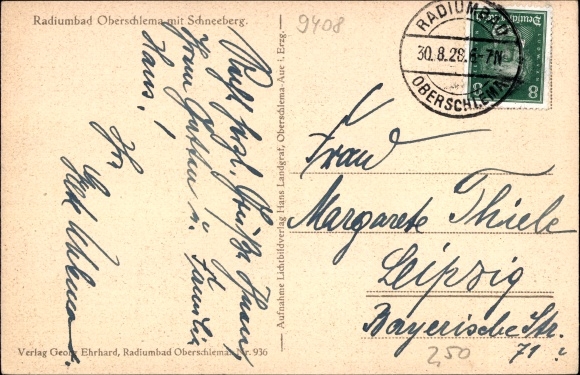 Radiumbad Oberschlema mit Schneeberg.
9408
RADIUMBAD
30.8.28.6-7N
OBERSCHLEMA
Deutsches Reich
8 8
Frau
Margarete Thiele
Leipzig
Bayerische Str.
71
2,50
Recht herzl. Grüße Ihnen,
Ihrem Gatten u. Familie
Haus,
Ihr
Aufnahme Lichtbildverlag Hans Landgraf, Oberschlema-Aue i. Erzg.
Verlag Georg Ehrhard, Radiumbad Oberschlema. Nr. 936